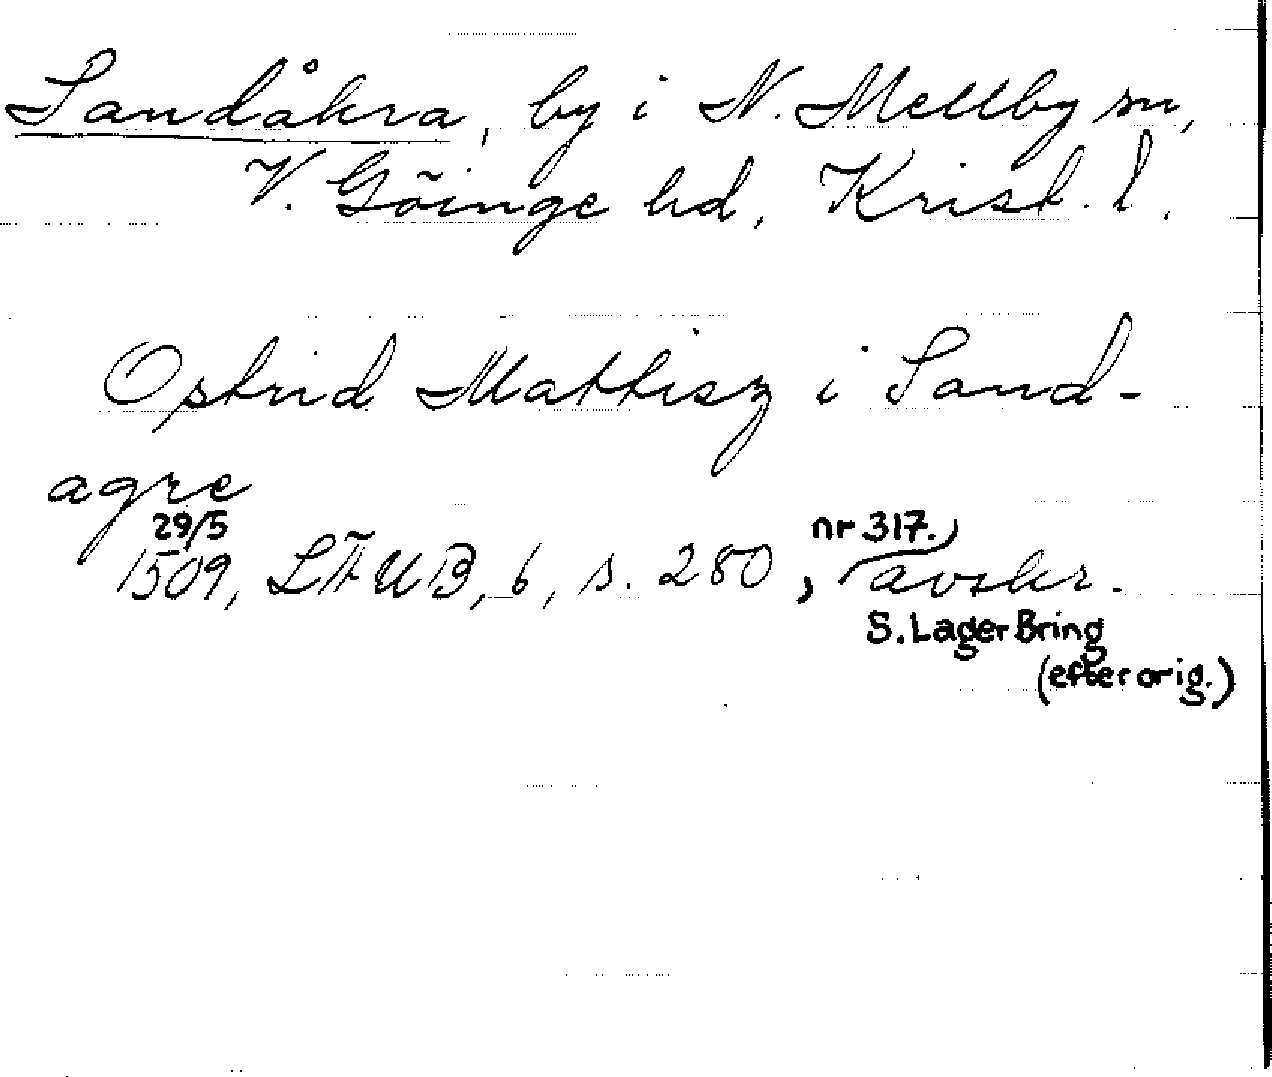 Sandåkra, by i N. Mellby sn,
V. Göinge hd, Krist. l.
Opstrid Mattisz i Sand-
agre
29/5 nr 317.
1509, LÄUB, 6, s. 280, avskr.
S. LagerBring
(efter orig.)